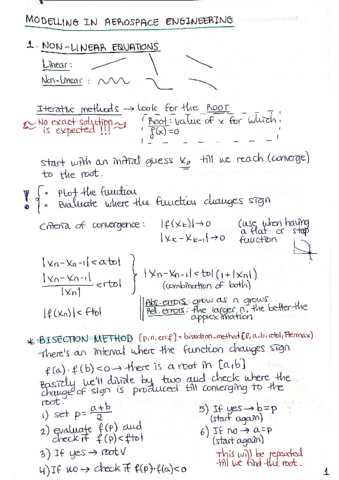 MODELLING IN AEROSPACE ENGINEERING
1. NON-LINEAR EQUATIONS
Linear:
Non-linear:
Iterative methods → look for the ROOT
No exact solution is expected !!!
Root: value of x for which
f(x)=0
start with an initial guess x₀ till we reach (converge)
to the root.
• Plot the function
• Evaluate where the function changes sign
Criteria of convergence: |f(xₖ)|→0
|xₖ - xₖ₋₁|→0
(use when having
a flat or step
function
|xₙ-xₙ₋₁|<atol
|xₙ-xₙ₋₁| / |xₙ| <rtol
|xₙ-xₙ₋₁|<tol(1+|xₙ|)
(combination of both)
|f(xₙ)|<ftol
Abs. errors: grow as n grows
Rel. errors: the larger n, the better the
approximation
* BISECTION METHOD [p,n,err,f]=bisection_method(f,a,b,atol,itermax)
There's an interval where the function changes sign
f(a)·f(b)<0→there is a root in [a,b]
Basicly we'll divide by two and check where the
change of sign is produced till converging to the
root.
1) set p = a+b / 2
2) evaluate f(p) and
check if f(p)<ftol
3) If yes → root √
4) If no → check if f(p)·f(a)<0
5) If yes→b=p
(start again)
6) If no →a=p
(start again)
This will be repeated
till we find the root.
1